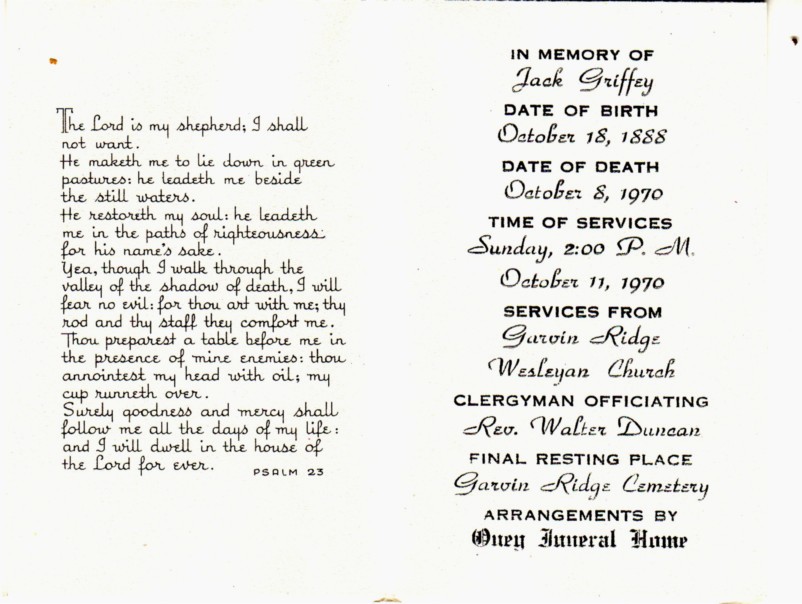 The Lord is my shepherd; I shall
not want.
He maketh me to lie down in green
pastures: he leadeth me beside
the still waters.
He restoreth my soul: he leadeth
me in the paths of righteousness
for his name's sake.
Yea, though I walk through the
valley of the shadow of death, I will
fear no evil: for thou art with me; thy
rod and thy staff they comfort me.
Thou preparest a table before me in
the presence of mine enemies: thou
annointest my head with oil; my
cup runneth over.
Surely goodness and mercy shall
follow me all the days of my life:
and I will dwell in the house of
the Lord for ever.
PSALM 23
IN MEMORY OF
Jack Griffey
DATE OF BIRTH
October 18, 1888
DATE OF DEATH
October 8, 1970
TIME OF SERVICES
Sunday, 2:00 P. M.
October 11, 1970
SERVICES FROM
Garvin Ridge
Wesleyan Church
CLERGYMAN OFFICIATING
Rev. Walter Duncan
FINAL RESTING PLACE
Garvin Ridge Cemetery
ARRANGEMENTS BY
Oney Funeral Home